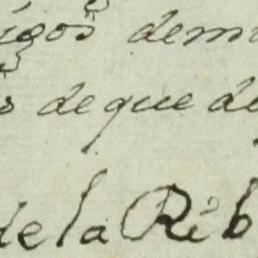 igos dem
s de que de
de la Rib